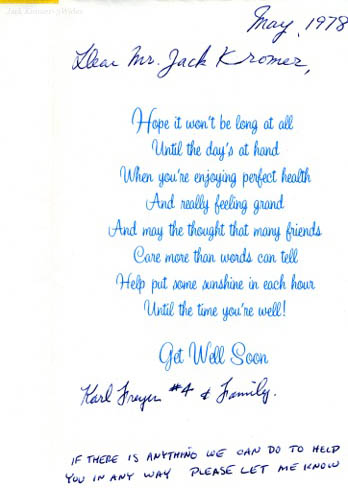 May, 1978
Dear Mr. Jack Kromer,
Hope it won't be long at all
Until the day's at hand
When you're enjoying perfect health
And really feeling grand
And may the thought that many friends
Care more than words can tell
Help put some sunshine in each hour
Until the time you're well!
Get Well Soon
Karl Freyer #4 & Family.
IF THERE IS ANYTHING WE CAN DO TO HELP
YOU IN ANY WAY PLEASE LET ME KNOW